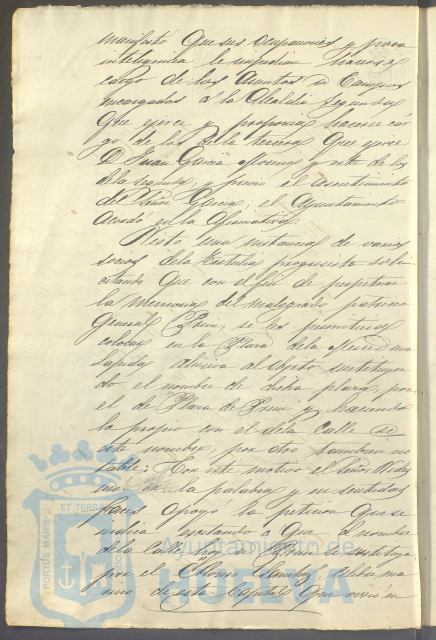 manifestó que sus ocupaciones y poca
inteligencia le impedian hacerse
cargo de los Asuntos de Campos
encargados á la Alcaldia segunda
que ejerce y proponia hacerse car
go de los de la tercera que ejerce
D. Juan Garcia Moreno y este de los
de la segunda, y previo el asentimiento
del Señor Garcia; el Ayuntamiento
Acordó en la afirmativa.
Visto una instancia de varios
socios de la tertulia progresista soli
citando que con el fin de perpetuar
la memoria del malogrado patricio
General Prim, se les permitiera
colocar en la Plaza de la Merced una
lapida alusiva al objeto sustituyen
do el nombre de dicha plaza, por
el de Plaza de Prim y haciendo
lo propio con el de la Calle de
este nombre, por otro tambien no
table: Con este motivo el Señor
la palabra y en sentidas
frases apoyó la peticion que se
indica que el nombre
de la Calle de Prim se sustituya
por el Alonso Sanchez, celebre ma
rino de esta Capital que murió en
PORTUS MARIS
ET TERRAE
CUSTODIA
Ayuntamiento de
HUELVA